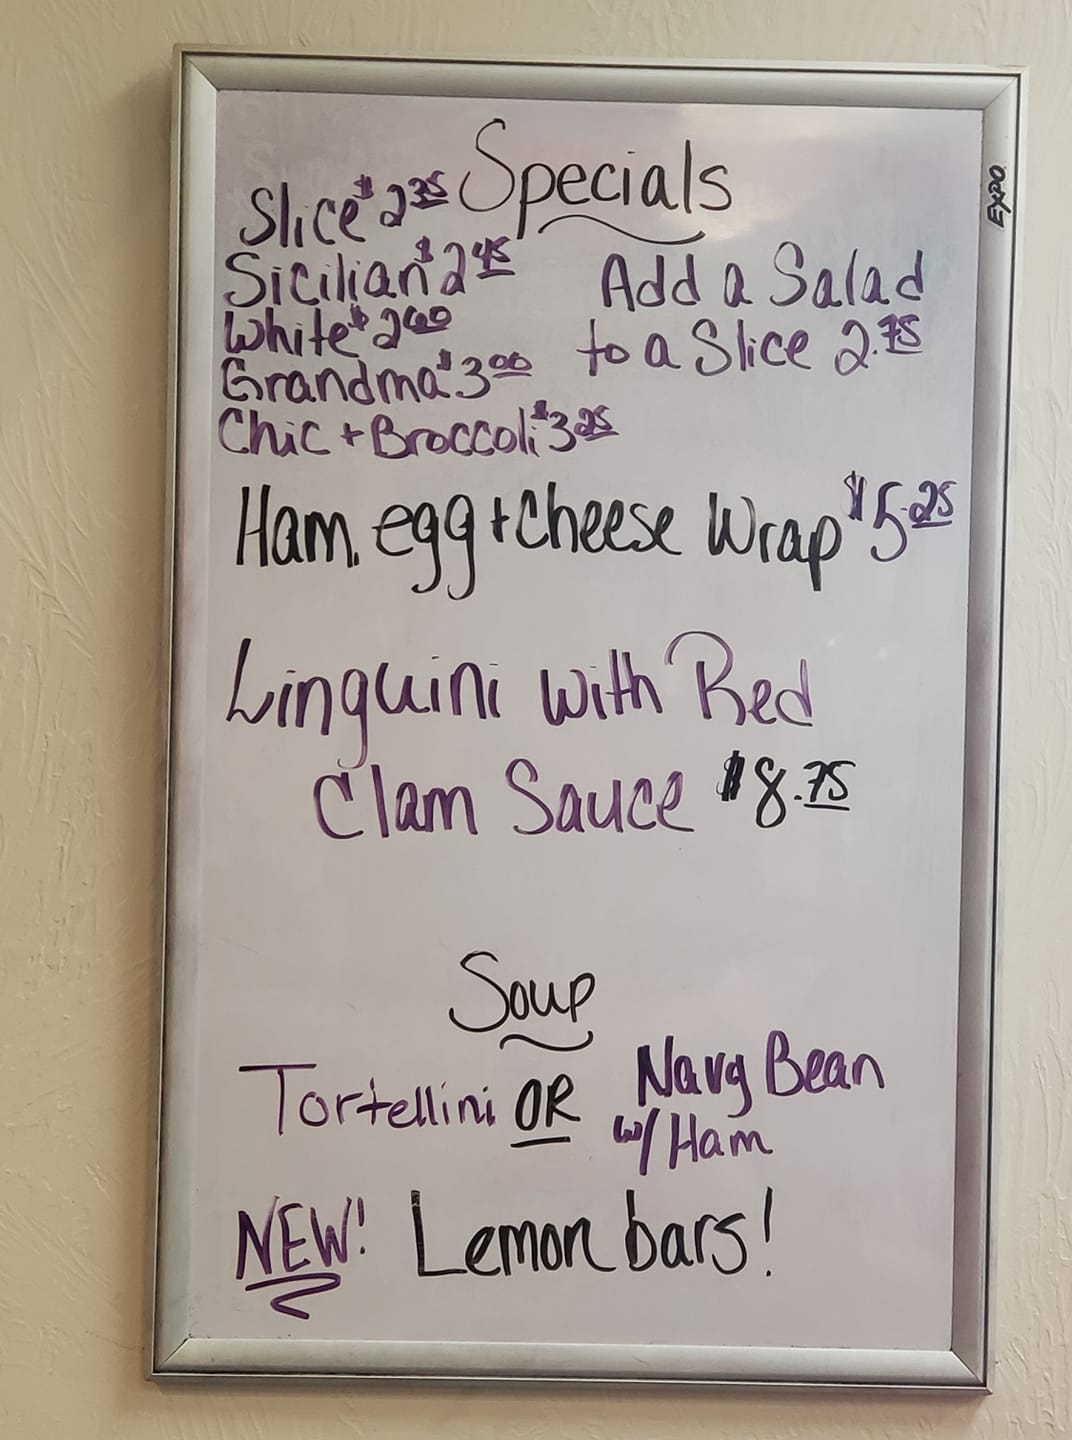 Specials
Slice $2.35
Sicilian $2.45
White $2.60
Grandma $3.00
Chic + Broccoli $3.25
Add a Salad
to a Slice 2.75
Ham, egg + Cheese Wrap $5.25
Linguini with Red
Clam Sauce $8.75
Soup
Tortellini OR Navy Bean
w/ Ham
NEW! Lemon bars!
EXPO